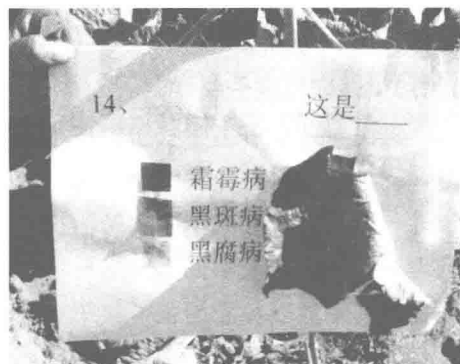 14、 这是____
霜霉病
黑斑病
黑腐病